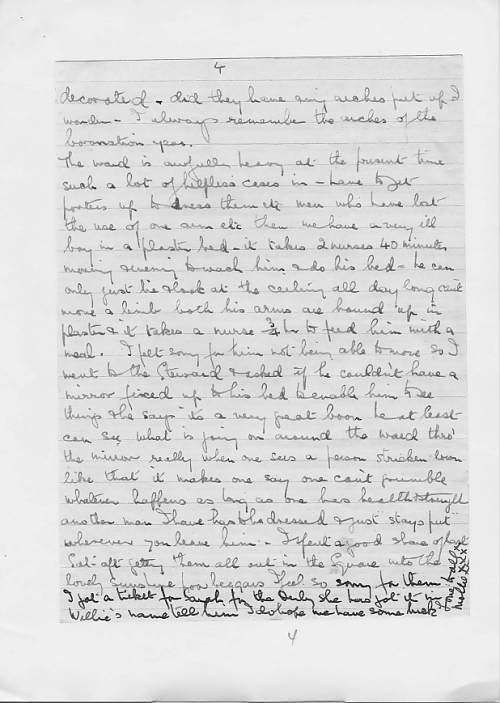 4
decorated. did they have any arches put up I
wonder - I always remember the arches of the
Coronation year.
The ward is awfully heavy at the present time
such a lot of helpless cases in - have to get
porters up to dress them etc men who have lost
the use of one arm etc then we have a very ill
boy in a plaster bed - it takes 2 nurses 40 minutes
morning & evening to wash him & do his bed - he can
only just lie & look at the ceiling all day long cant
move a limb both his arms are bound up in
plaster & it takes a nurse ¾ hr to feed him with a
meal. I felt sorry for him not being able to move so I
went to the Steward & asked if he couldn't have a
mirror fixed up to his bed to enable him to see
things & he says its a very great boon he at least
can see what is going on around the ward thro'
the mirror really when one sees a person stricken down
like that it makes one say one cant grumble
whatever happens as long as one has health & strength
another man I have has to be dressed & just "stays put"
wherever you leave him - I spent a good share of
Sat. aft getting them all out in the Square into the
lovely sunshine poor beggars I feel so sorry for them
I got a ticket for for the Derby she has got it in
Willie's name tell him I do hope we have some luck
love to all
Mollie xxx
4